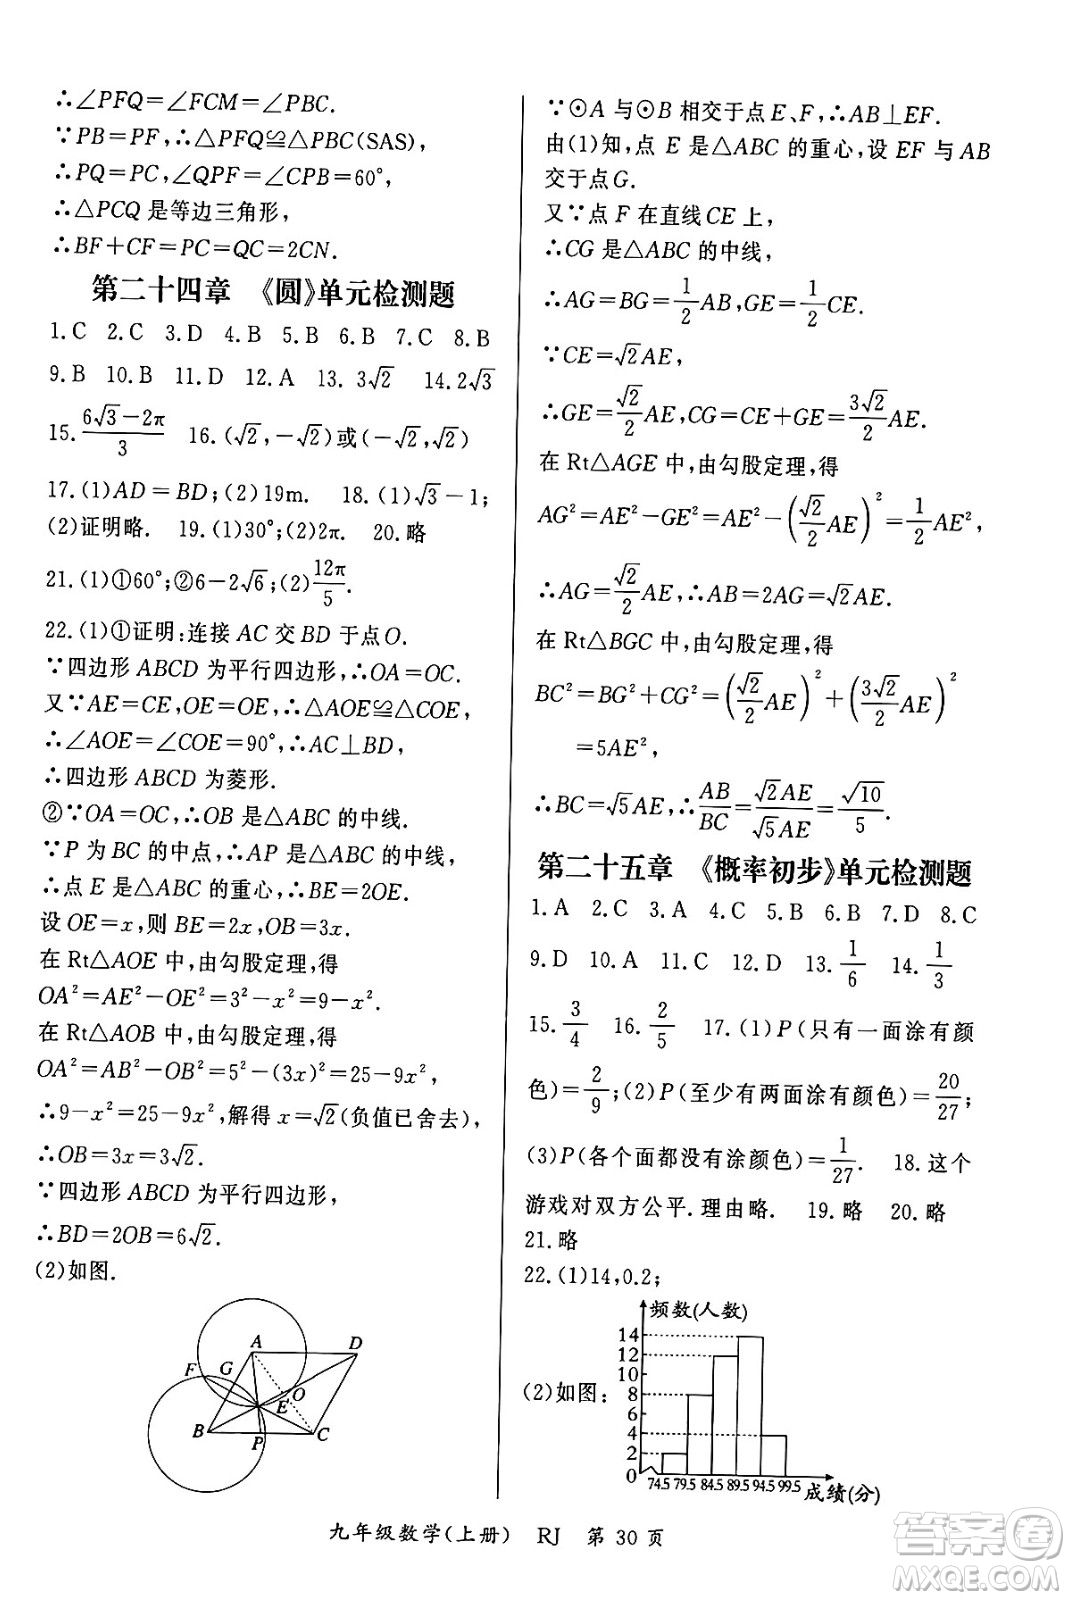 ∴∠PFQ=∠FCM=∠PBC.
∵PB=PF,∴△PFQ≌△PBC(SAS),
∴PQ=PC,∠QPF=∠CPB=60°,
∴△PCQ 是等边三角形,
∴BF+CF=PC=QC=2CN.
第二十四章 《圆》单元检测题
1.C 2.C 3.D 4.B 5.B 6.B 7.C 8.B
9.B 10.B 11.D 12.A 13.3√2 14.2√3
15.(6√3-2π)/3 16.(√2,-√2)或(-√2,√2)
17.(1)AD=BD;(2)19m. 18.(1)√3-1;
(2)证明略. 19.(1)30°;(2)2π. 20.略
21.(1)①60°;②6-2√6;(2)12π/5.
22.(1)①证明:连接 AC 交 BD 于点O.
∵四边形 ABCD 为平行四边形,∴OA=OC.
又∵AE=CE,OE=OE,∴△AOE≌△COE,
∴∠AOE=∠COE=90°,∴AC⊥BD,
∴四边形 ABCD 为菱形.
②∵OA=OC,∴OB 是△ABC 的中线.
∵P 为 BC 的中点,∴AP 是△ABC 的中线,
∴点 E 是△ABC 的重心,∴BE=2OE.
设 OE=x,则 BE=2x,OB=3x.
在 Rt△AOE 中,由勾股定理,得
OA²=AE²-OE²=3²-x²=9-x²
在 Rt△AOB 中,由勾股定理,得
OA²=AB²-OB²=5²-(3x)²=25-9x²,
∴9-x²=25-9x²,解得 x=√2(负值已舍去),
∴OB=3x=3√2.
∵四边形 ABCD 为平行四边形,
∴BD=2OB=6√2.
(2)如图.
A
D
F
G
O
E
B
P
C
∵⊙A 与⊙B 相交于点 E、F,∴AB⊥EF.
由(1)知,点 E 是△ABC 的重心,设 EF 与AB
交于点G.
又∵点 F 在直线 CE 上,
∴CG 是△ABC 的中线,
∴AG=BG=1/2 AB,GE=1/2 CE.
∵CE=√2AE,
∴GE=√2/2 AE,CG=CE+GE=3√2/2 AE.
在 Rt△AGE 中,由勾股定理,得
AG²=AE²-GE²=AE²-(√2/2 AE)²=1/2 AE²,
∴AG=√2/2 AE,∴AB=2AG=√2AE.
在 Rt△BGC 中,由勾股定理,得
BC²=BG²+CG²=(√2/2 AE)²+(3√2/2 AE)²
=5AE²,
∴BC=√5AE,∴AB/BC=√2AE/√5AE=√10/5.
第二十五章 《概率初步》单元检测题
1.A 2.C 3.A 4.C 5.B 6.B 7.D 8.C
9.D 10.A 11.C 12.D 13.1/6 14.1/3
15.3/4 16.2/5 17.(1)P(只有一面涂有颜
色)=2/9;(2)P(至少有两面涂有颜色)=20/27;
(3)P(各个面都没有涂颜色)=1/27. 18.这个
游戏对双方公平.理由略. 19.略 20.略
21.略
22.(1)14,0.2;
(2)如图:
频数(人数)
14
12
10
8
6
4
2
0
74.5 79.5 84.5 89.5 94.5 99.5
成绩(分)
九年级数学(上册) RJ 第 30 页
作业精灵
MXQE.COM